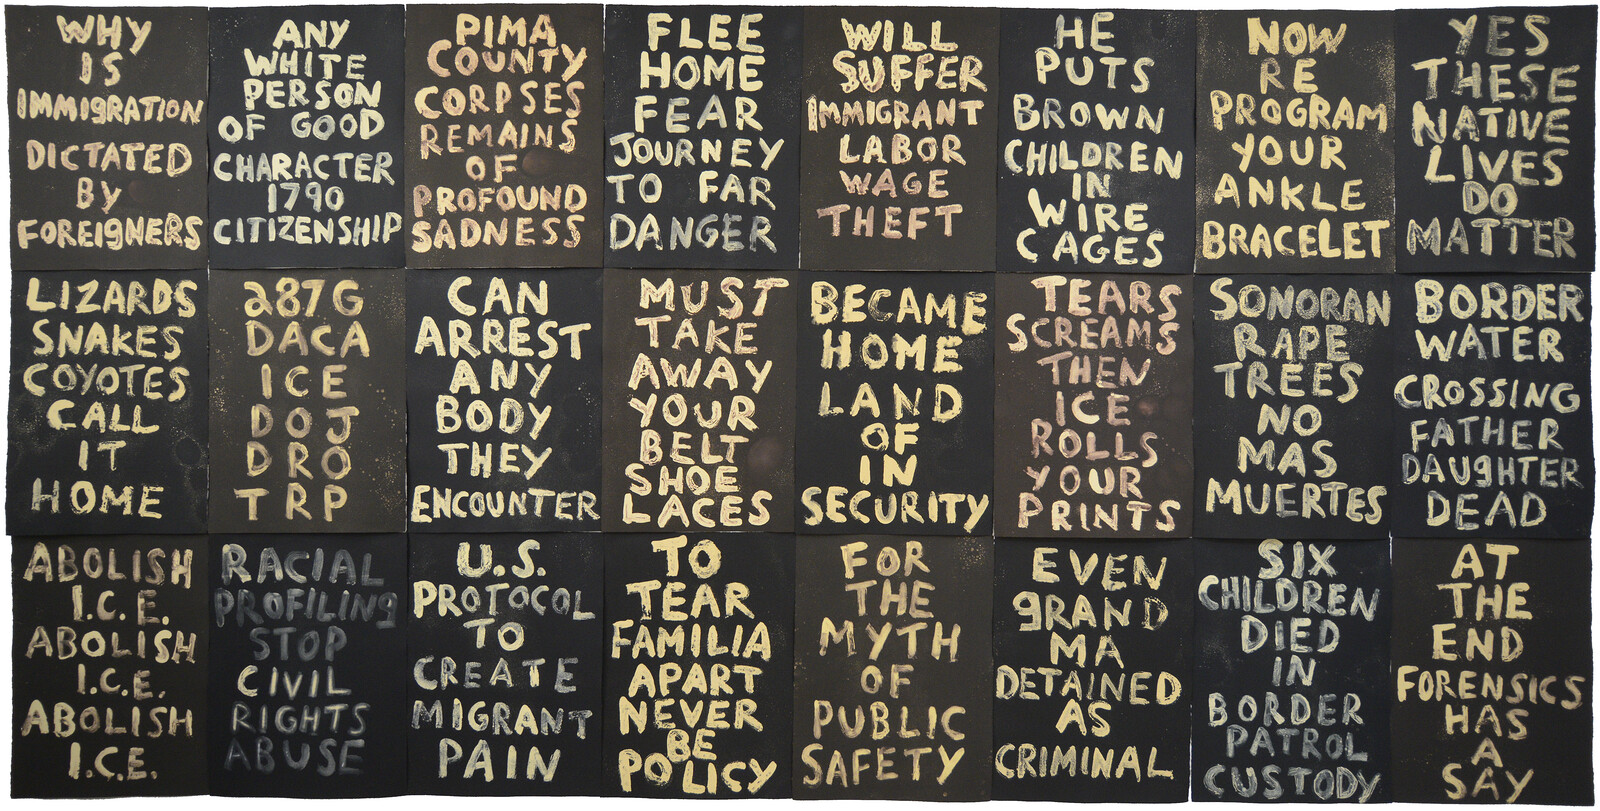 WHY
IS
IMMIgRATION
DICTATED
BY
FOREIgNERS
ANY
WHITE
PERSON
OF GOOD
CHARACTER
1790
CITIZENSHIP
PIMA
COUNTY
CORPSES
REMAINS
OF
PROFOUND
SADNESS
FLEE
HOME
FEAR
JOURNEY
TO FAR
DANGER
WILL
SUFFER
IMMIGRANT
LABOR
WAGE
THEFT
HE
PUTS
BROWN
CHILDREN
IN
WIRE
CAGES
NOW
RE
PROGRAM
YOUR
ANKLE
BRACELET
YES
THESE
NATIVE
LIVES
DO
MATTER
LIZARDS
SNAKES
COYOTES
CALL
IT
HOME
287G
DACA
ICE
DOJ
DRO
TRP
CAN
ARREST
ANY
BODY
THEY
ENCOUNTER
MUST
TAKE
AWAY
YOUR
BELT
SHOE
LACES
BECAME
HOME
LAND
OF
IN
SECURITY
TEARS
SCREAMS
THEN
ICE
ROLLS
YOUR
PRINTS
SONORAN
RAPE
TREES
NO
MAS
MUERTES
BORDER
WATER
CROSSING
FATHER
DAUgHTER
DEAD
ABOLISH
I.C.E.
ABOLISH
I.C.E.
ABOLISH
I.C.E.
RACIAL
PROFILINg
STOP
CIVIL
RIGHTS
ABUSE
U.S.
PROTOCOL
TO
CREATE
MIGRANT
PAIN
TO
TEAR
FAMILIA
APART
NEVER
BE
POLICY
FOR
THE
MYTH
OF
PUBLIC
SAFETY
EVEN
gRAND
MA
DETAINED
AS
CRIMINAL
SIX
CHILDREN
DIED
IN
BORDER
PATROL
CUSTODY
AT
THE
END
FORENSICS
HAS
A
SAY